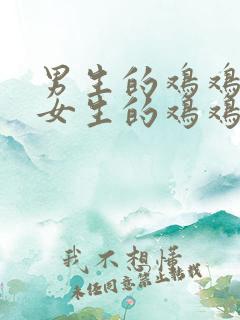 男生的鸡鸡
女生的鸡鸡
我不想懂
未经同意禁止转载